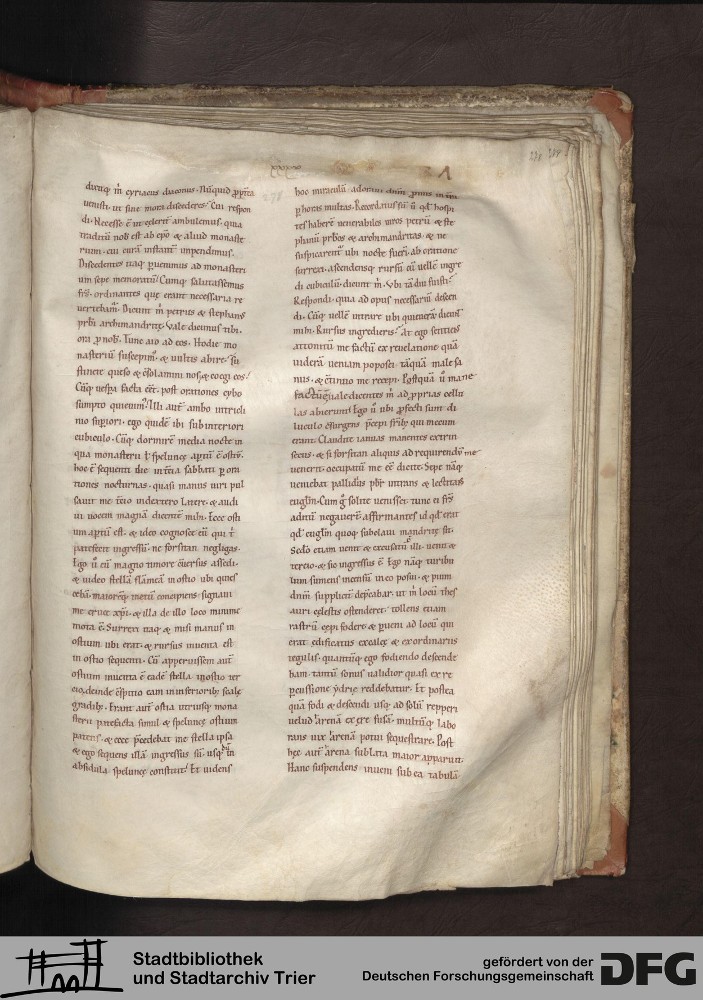 dixitq; m̄ cyriacus diaconus. Nūquid ꝓpt̄ea
uenisti. ut sine mora discederes? Cui respon
di. Necesse ē ut celerit̄ ambulemus. quia
traditū nob̄ est ab ep̄o & aliud monaste
rium. cui curā instant̄ impendimus.
Discedentes itaq; ꝑuenimus ad monasteri
um sepe memoratū. Cumq; salutassemus
fr̄s. ordinantes que erant necessaria re
uertebam̄. Dicunt m̄ petrus & stephanus
pr̄bi archimandritę. Vale dicimus tibi.
ora ꝓ nob̄. Tunc aio ad eos. Hodie mo
nasteriū suscepim̄. & uultis abire? Su
stinete queso & c̄solamini nos. & coegi eos.
Cūq; uespa facta eēt. post orationes cybo
sumpto quieuim̄. Illi aut̄ ambo intricli
nio supiori. ego quidē ibi subinteriori
cubiculo. Cūq; dormirē media nocte in
qua monasterii ł spelunce aptū ē ostiū.
hoc ē sequenti die intc̄ia sabbati ꝑ om
tiones nocturnas. quasi manus uiri pul
sauit me tc̄io indextero latere. & audi
ui uocem magnā dicentē mihi. Ecce osti
um aptū est. & ideo cognosce eū qui t̄
patefecit ingressū. ne forsitan negligas.
Ego ū cū magno timore c̄uersus assedi.
& uideo stellā flāmeā in ostio ubi quies
cebā. maioremq; metū concipiens. signaui
me cruce xp̄i. & illa de illo loco minime
mota ē. Surrexi itaq; & misi manus in
ostium ubi erat. & rursus inuenta est
in ostio sequenti. Cū apperuissem aut̄
ostium inuenta ē eadē stella inostio ter
cio. deinde c̄spitio eam ininferiorib; scale
gradib;. Erant aut̄ ostia utriusq; mona
sterii patefacta simul & speluncę ostium
patens. & ecce p̄cedebat me stella ipsa
& ego sequens illā ingressus sū. usq; dū in
absidula speluncę constitit. Et uidens
278
hoc miraculū adoraui dnm̄
ꝑ horas multas. Recordatus sū ū qd̄ hospi
tes haberē uenerabiles uiros petrū & ste
phanū pr̄bos & archimandritas. & ne
suspicarent̄ ubi nocte fuerī. ab oratione
surrexi. ascendensq; rursū cū uellē ingre
di cubiculū. dicunt m̄. Vbi tādiu fuisti?
Respondi. quia ad opus necessariū descen
di. Cūq; uellē intrare ubi quieuerā dicunt
mihi. Rursus ingrederis? At ego sentiens
attonitū me factū ex reuelatione quā
uiderā. ueniam poposci. tāquā male sa
nus. & c̄tinuo me recepi. Postquā ū mane
factū ē uale dicentes m̄ ad ꝓprias cellu
las abierunt. Ego ū ubi ꝓfecti sunt. di
luculo c̄surgens p̄cepi frīb; qui mecum
erant. Claudite ianuas manentes extrin
secus. & si forsitan aliquis ad requirendū me
uenerit. occupatū me eē dicite. Sepe nāq;
ueniebat palladius pbr̄ intrans & lectitās
eugłm. Cum g̊ solite uenisset. tunc ei fr̄s
aditū negauert̄. affirmantes id qd̄ erat
qd̄ eugłm quoq; subelaui mandrite sit.
Sedo etiam uenit & excusatū ē illi. uenit &
tercio. & sic ingressus ē. Ego nāq; turibu
lum sumens. incensū in eo posui. & pium
dnm̄ supplicit̄ dep̄cabar. ut m̄ locū thes
auri cęlestis ostenderet. tollens etiam
rastrū cępi fodere. & ꝑueni ad locū qui
erat edificatus excalce & ex ordinariis
tegulis. quantūq; ego fodiendo descende
bam. tantū sonus ualidior quasi ex re
pcussione ydrię reddebatur. Et postea
quā fodi & descendi usq; ad solū repperi
uelud arena ex ęre fusā. multūq; labo
rans uix arenā potui sequestrare. Post
hęc aut̄ arena sublata maior apparuit.
Hanc suspendens inueni sub ea tabulā
Stadtbibliothek
und Stadtarchiv Trier
gefördert von der
Deutschen Forschungsgemeinschaft
DFG